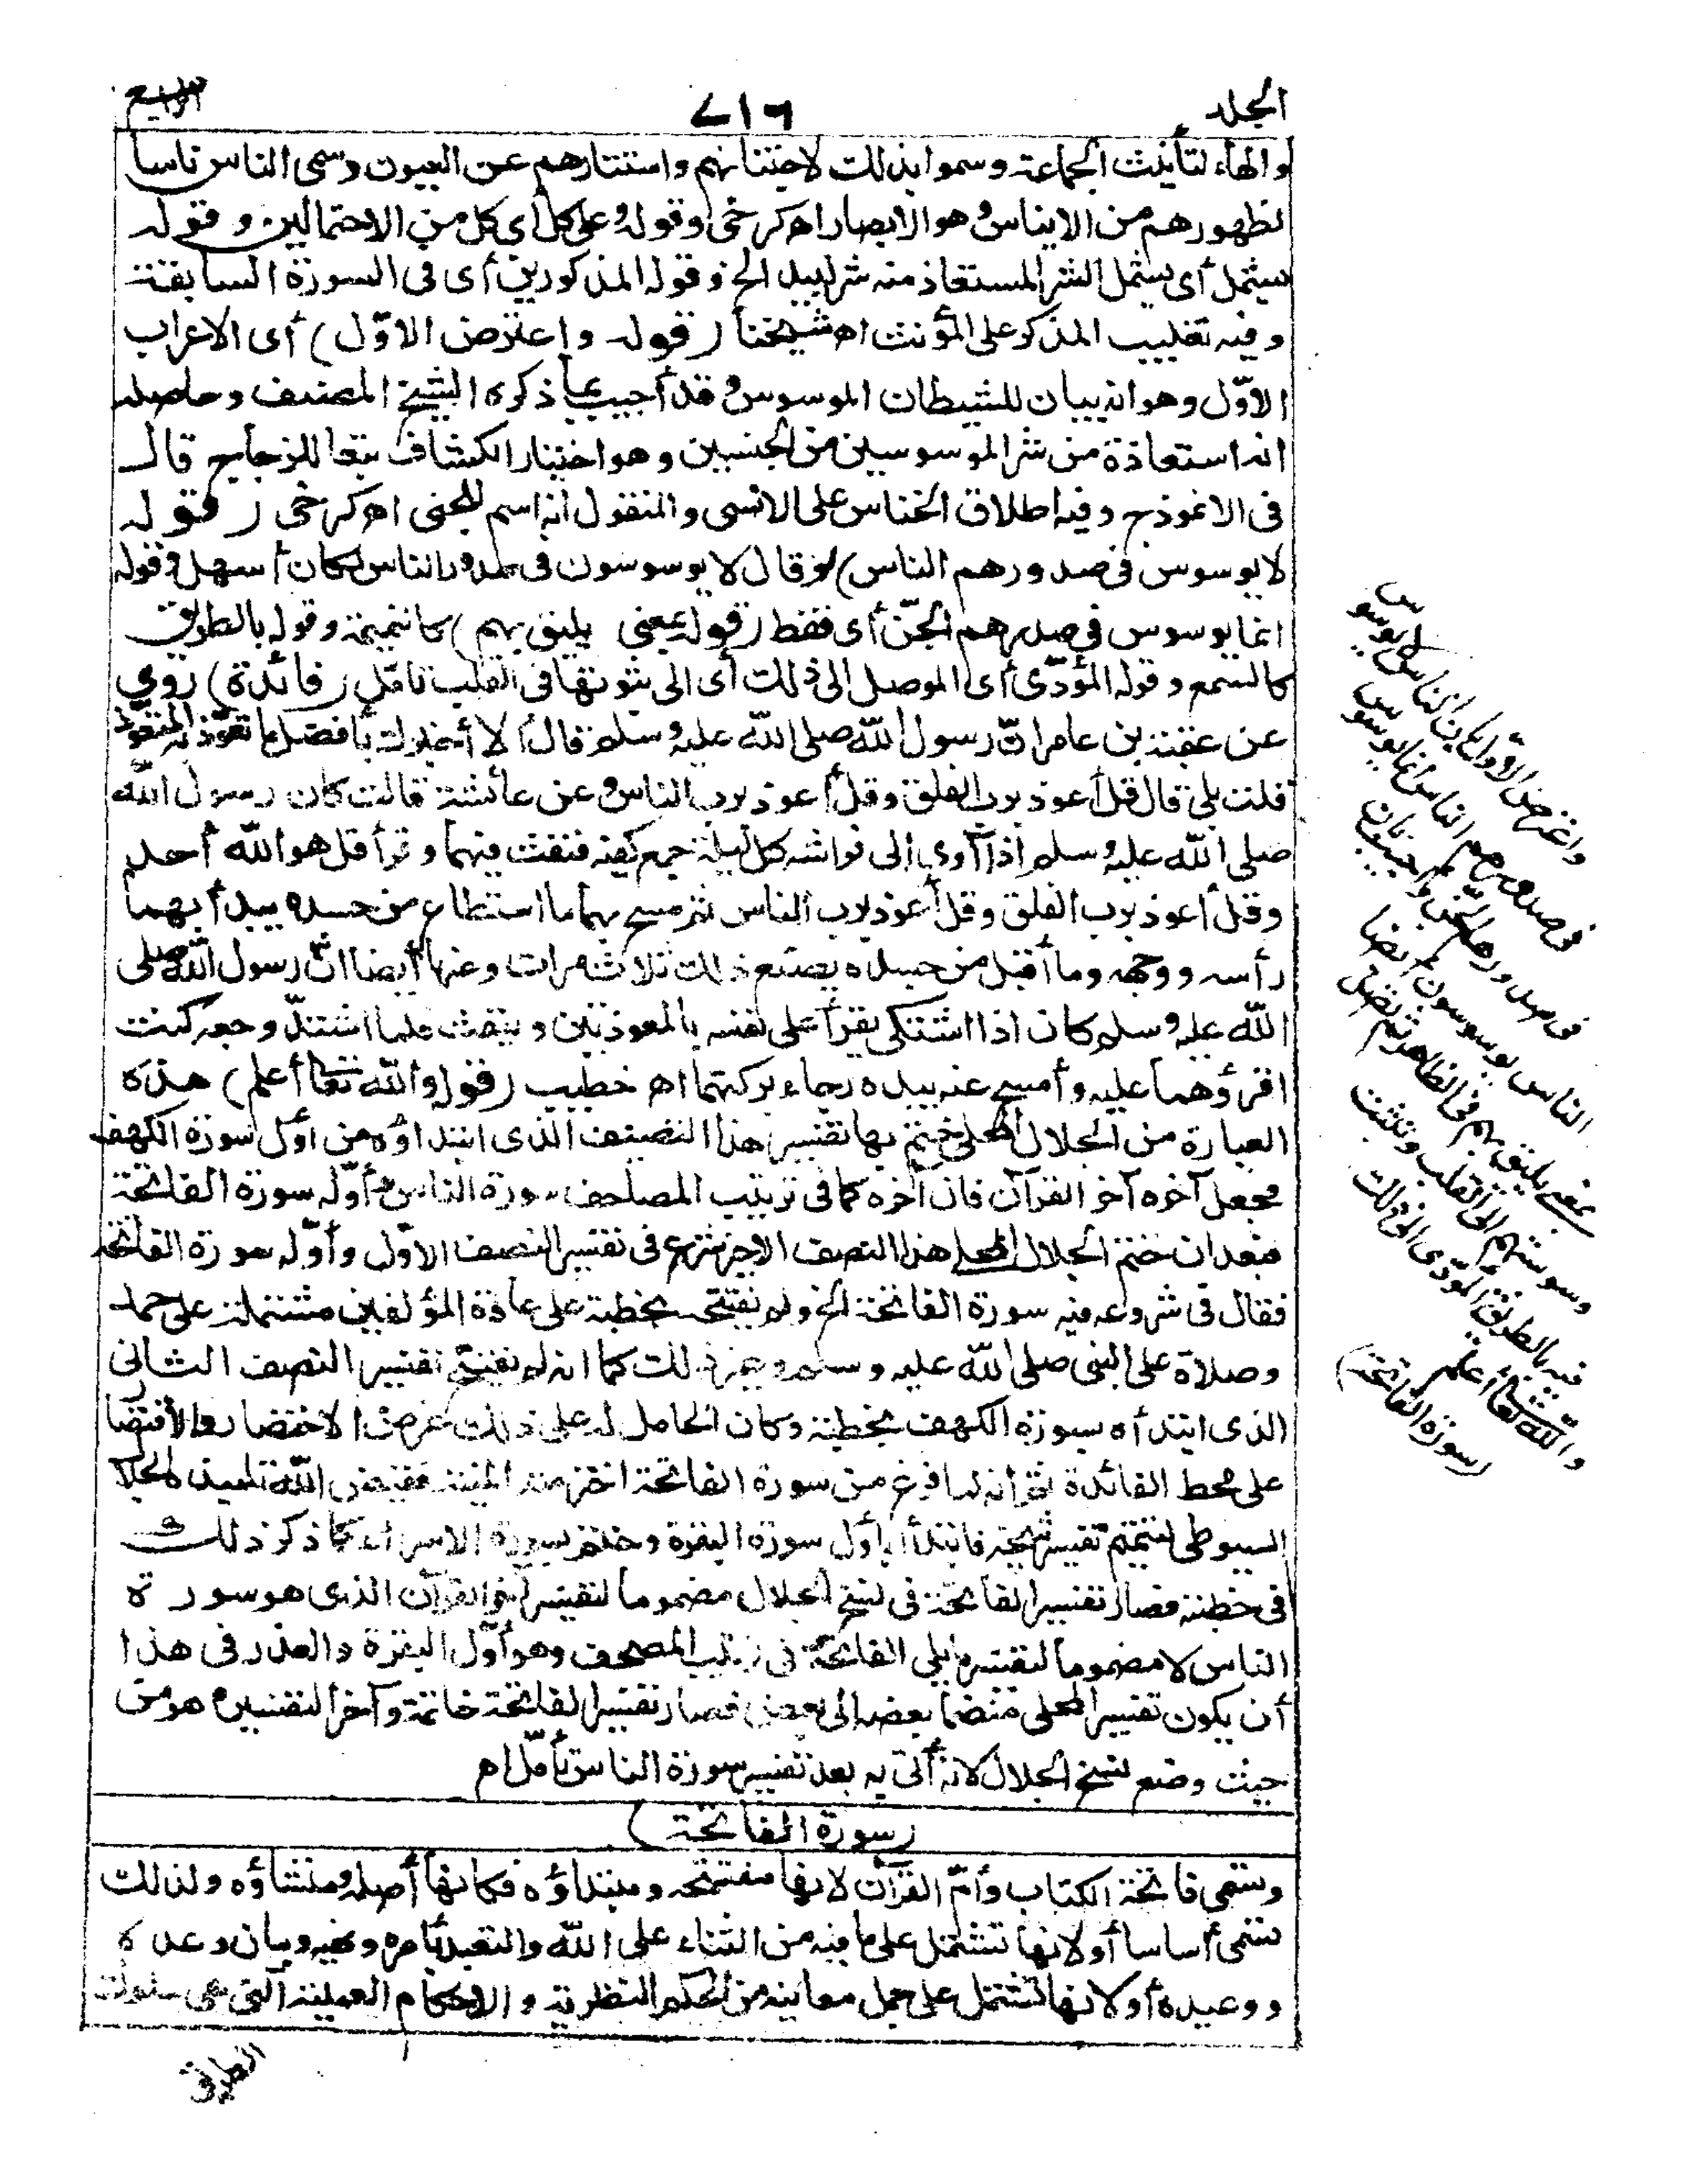 الجلد
٦١٧
الرابع
والهاء لتأنيث الجماعة وسموا بذلك لاجتنانهم واستتارهم عن العيون وسمى الناس ناسا
لظهورهم من الايناس وهو الابصار اه كرخى وقوله وعلى كل أى كل من الاحتمالين وقوله
يشمل أى يشمل الشر المستعاذ منه شر لبيد الخ وقوله المذكورين أى فى السورة السابقة
وفيه تغليب المذكر على المؤنث اه شيخنا (قوله واعترض الاوّل) أى الاعراب
الاوّل وهو انه بيان للشيطان الموسوس وقد أجيب بما ذكره الشيخ المصنف وحاصله
انه استعاذة من شر الموسوسين من الجنسين وهو اختيار الكشاف تبعا للزجاج قال
فى الانموذج وفيه اطلاق الخناس على الانسى والمنقول أنه اسم للجنى اه كرخى (قوله
لا يوسوس فى صدورهم الناس) لو قال لا يوسوسون فى صدور الناس لكان أسهل وقوله
انما يوسوس فى صدرهم الجنّ أى فقط (قوله بمعنى يليق بهم) كالنميمة وقوله بالطريق
كالسمع وقوله المؤدّى أى الموصل الى ذلك أى الى ثبوتها فى القلب تامّل (فائدة) روي
عن عقبة بن عامر انّ رسول الله صلى الله عليه وسلم قال ألا أخبرك بأفضل ما تعوّذ به المتعوّذ
قلت بلى قال قل أعوذ برب الفلق وقل أعوذ برب الناس وعن عائشة قالت كان رسول الله
صلى الله عليه وسلم اذا آوى الى فراشه كل ليلة جمع كفيه فنفث فيهما وقرأ قل هو الله أحد
وقل أعوذ برب الفلق وقل أعوذ برب الناس ثم مسح بهما ما استطاع من جسده يبدأ بهما
رأسه ووجهه وما أقبل من جسده يصنع ذلك ثلاث مرات وعنها أيضا انّ رسول الله صلى
الله عليه وسلم كان اذا اشتكى يقرأ على نفسه بالمعوذتين وينفث فلما اشتدّ وجعه كنت
اقرؤهما عليه وأمسح عنه بيده رجاء بركتهما اه خطيب (قوله والله تعا أعلم) هذه
العبارة من الجلال المحلى ختم بها تفسير هذا النصف الذى ابتداؤه من أول سورة الكهف
فجعل آخره آخر القرآن فان آخره كما فى ترتيب المصاحف سورة الناس وأوّله سورة الفاتحة
فبعد ان ختم الجلال المحلى هذا النصف الاخير شرع فى تفسير النصف الاوّل وأوّله سورة الفاتحة
فقال فى شروعه فيه سورة الفاتحة الخ ولم يفتتحه بخطبة على عادة المؤلفين مشتملة على حمد
وصلاة على النبى صلى الله عليه وسلم وغير ذلك كما انه لم يفتتح تفسير النصف الثانى
الذى ابتدأه بسورة الكهف بخطبة وكان الحامل له على ذلك غرض الاختصار والاقتصار
على محط الفائدة ثم انه لما فرغ من سورة الفاتحة اخترمته المنية فقيض الله تلميذه الجلال
السيوطى لتتميم تفسير شيخه فابتدأ بأول سورة البقرة وختم بسورة الاسراء كما ذكر ذلك
فى خطبته فصار تفسير الفاتحة فى نسخ الجلال مضموما لتفسير آخر القرآن الذى هو سورة
الناس لا مضموما لتفسير ما يلى الفاتحة فى ترتيب المصحف وهو أوّل البقرة والعذر فى هذا
أن يكون تفسير المحلى منضما بعضه الى بعض فصار تفسير الفاتحة خاتمة وآخر التفسيره هو من
حيث وضع نسخ الجلال لانه أتى به بعد تفسير سورة الناس تأمّل اه
(سورة الفاتحة)
وتسمى فاتحة الكتاب وأمّ القرآن لانها مفتتحه ومبتداؤه فكانها أصله ومنشاؤه ولذلك
تسمى أساسا أولانها تشتمل على ما فيه من الثناء على الله والتعبد بأمره ونهيه وبيان وعده
ووعيده أولانها تشتمل على جمل معانيه من الحكم النظرية والاحكام العملية التى هى سلوك
الطريق
واعترض الاوّل بان الناس لا يوسوس
فى صدورهم الناس انما يوسوس
فى صدورهم الجنّ واجيب بان
الناس يوسوسون أيضا
بمعنى يليق بهم فى الظاهر ثم تصل
وسوستهم الى القلب وتثبت
فيه بالطريق المؤدى الى ذلك
والله تعا أعلم
(سورة الفاتحة)